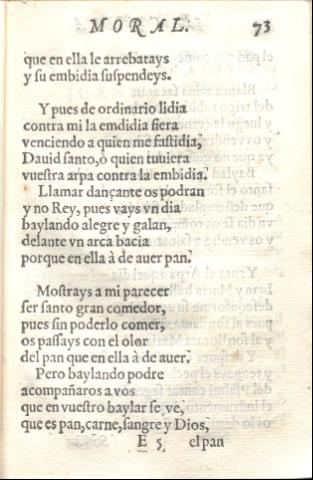 MORAL. 73
que en ella le arrebatays
y su embidia suspendeys.
Y pues de ordinario lidia
contra mi la emdidia fiera
venciendo a quien me fastidia,
Dauid santo, ò quien tuuiera
vuestra arpa contra la embidia.
Llamar dançante os podran
y no Rey, pues vays vn dia
baylando alegre y galan,
delante vn arca bacia
porque en ella à de auer pan.
Mostrays a mi parecer
ser santo gran comedor,
pues sin poderlo comer,
os passays con el olor
del pan que en ella à de auer.
Pero baylando podre
acompañaros a vos
que en vuestro baylar se ve,
que es pan, carne, sangre y Dios,
E 5 el pan